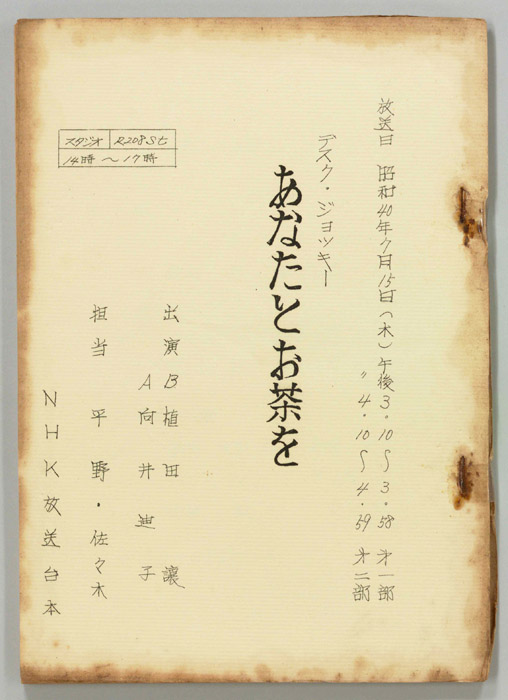 放送日 昭和40年7月15日（木）午後3.10〜3.58 才一部
〃 4.10〜4.59 才二部
デスク・ジョッキー
あなたとお茶を
出演 B 植田 譲
A 向井 迪子
担当 平野・佐々木
NHK放送台本
スタジオ R208St
14時〜17時